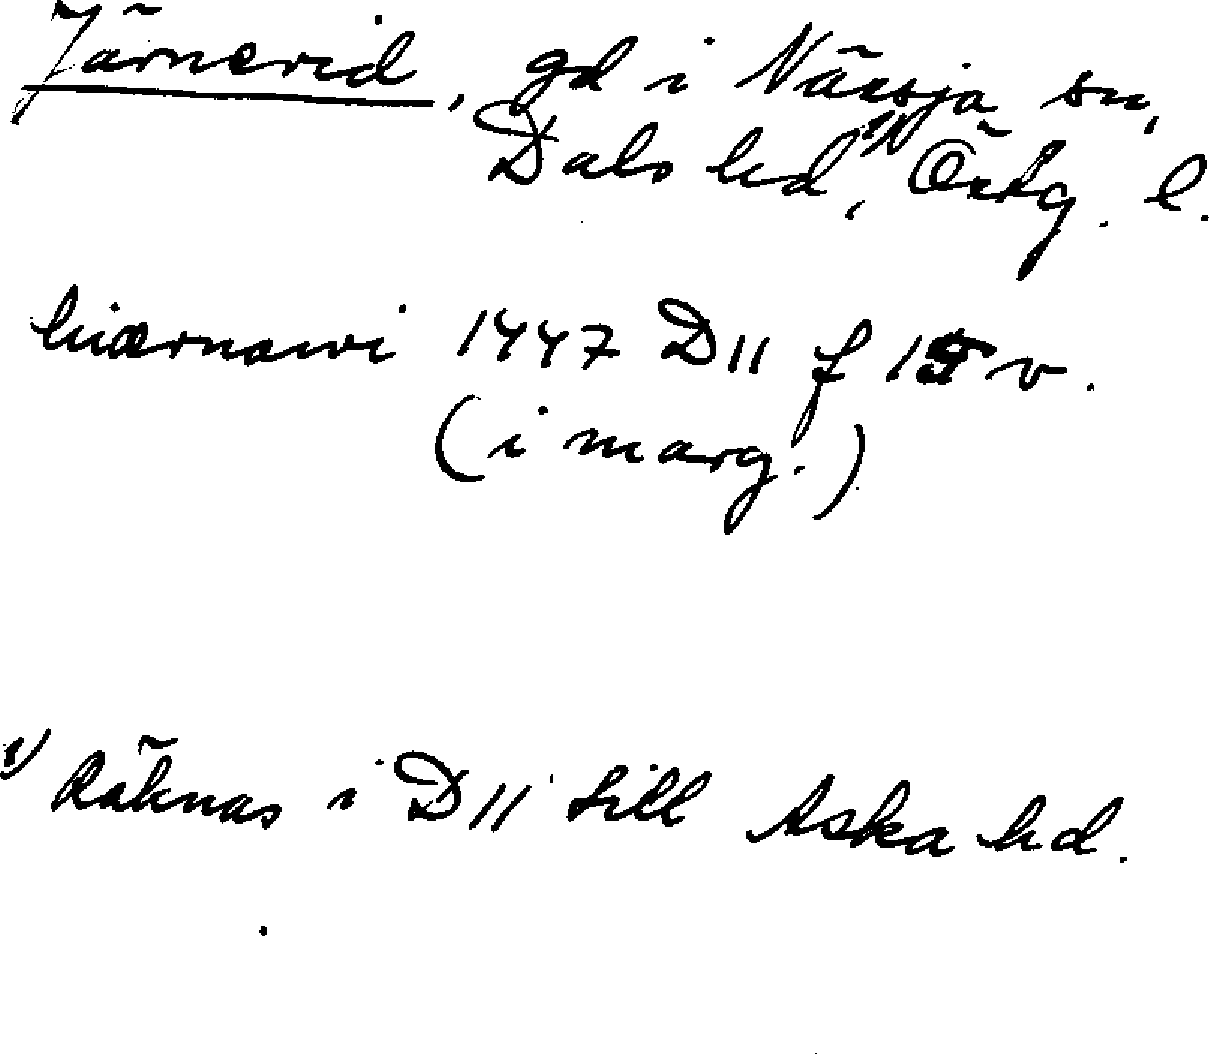 Järnevid, gd i Näusja sn,
Dals hd,¹⁾ Östg. l.
hiærnawi 1447 D11 f 15 v.
(i marg.)
¹⁾ Räknas i D11 till Aska hd.